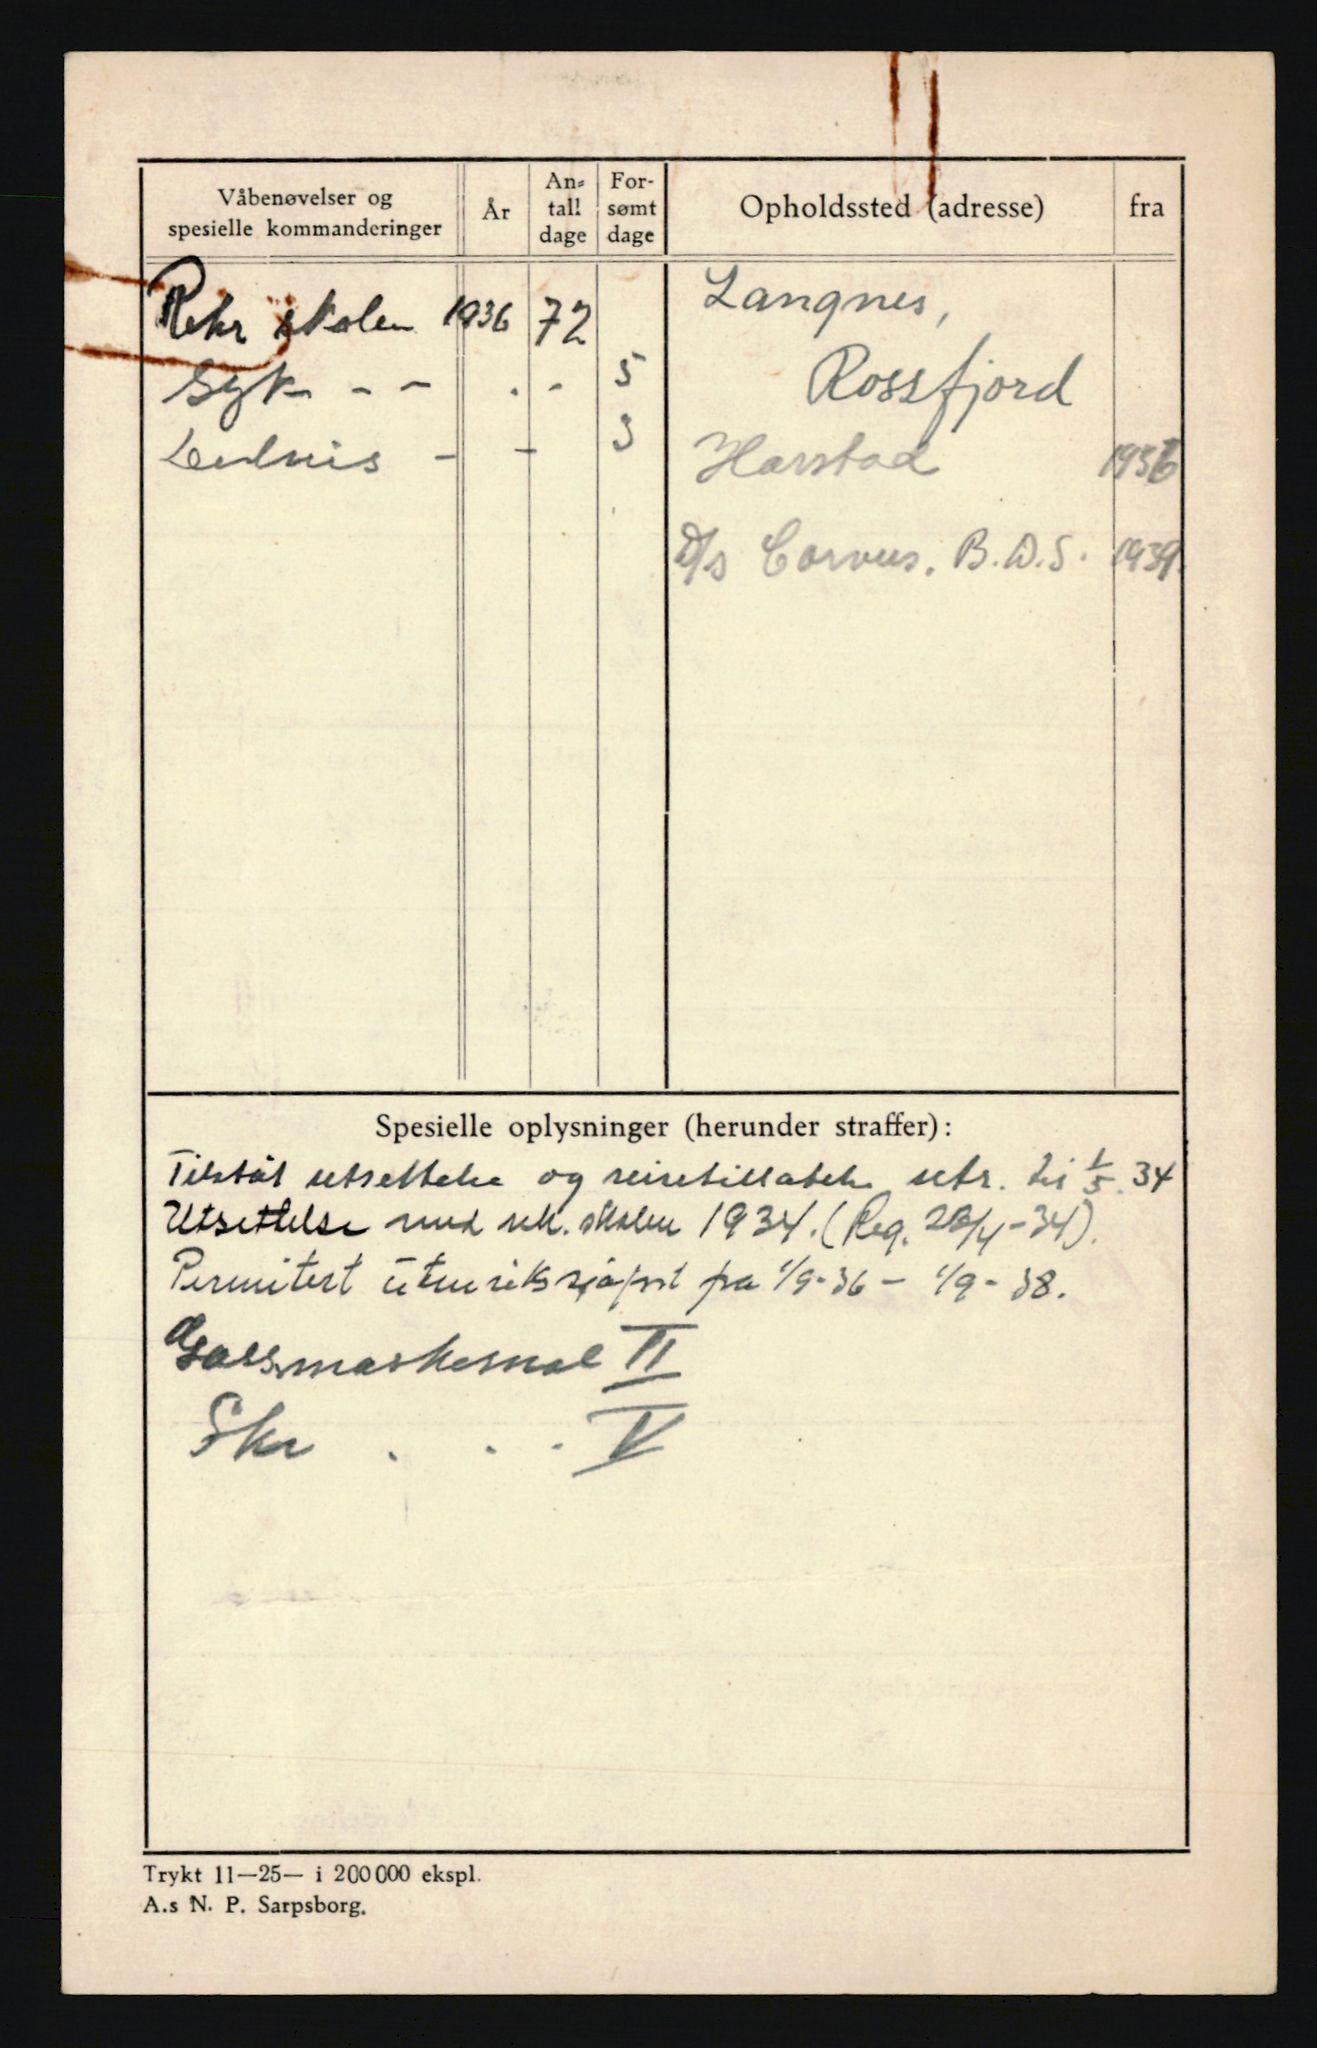 Våbenøvelser og
spesielle kommanderinger
År
An=
tall
dage
For-
sømt
dage
Opholdssted (adresse)
fra
Rekr skolen 1936 72
Syk - - . - 5
- - 3
Langnes,
Rossfjord
Harstad 1936
D/s Corvus. B.D.S. 1939.
Spesielle oplysninger (herunder straffer):
Tilstått utsettelse og reisetillatelse utr. til 1/5. 34
Utsettelse med rek. skolen 1934. (Reg. 28/4-34).
Permitert utenriks sjøfart fra 1/9-36 - 1/9-38.
Gassmaskesnal II
Skr . . . V
Trykt 11—25— i 200000 ekspl.
A.s N. P. Sarpsborg.